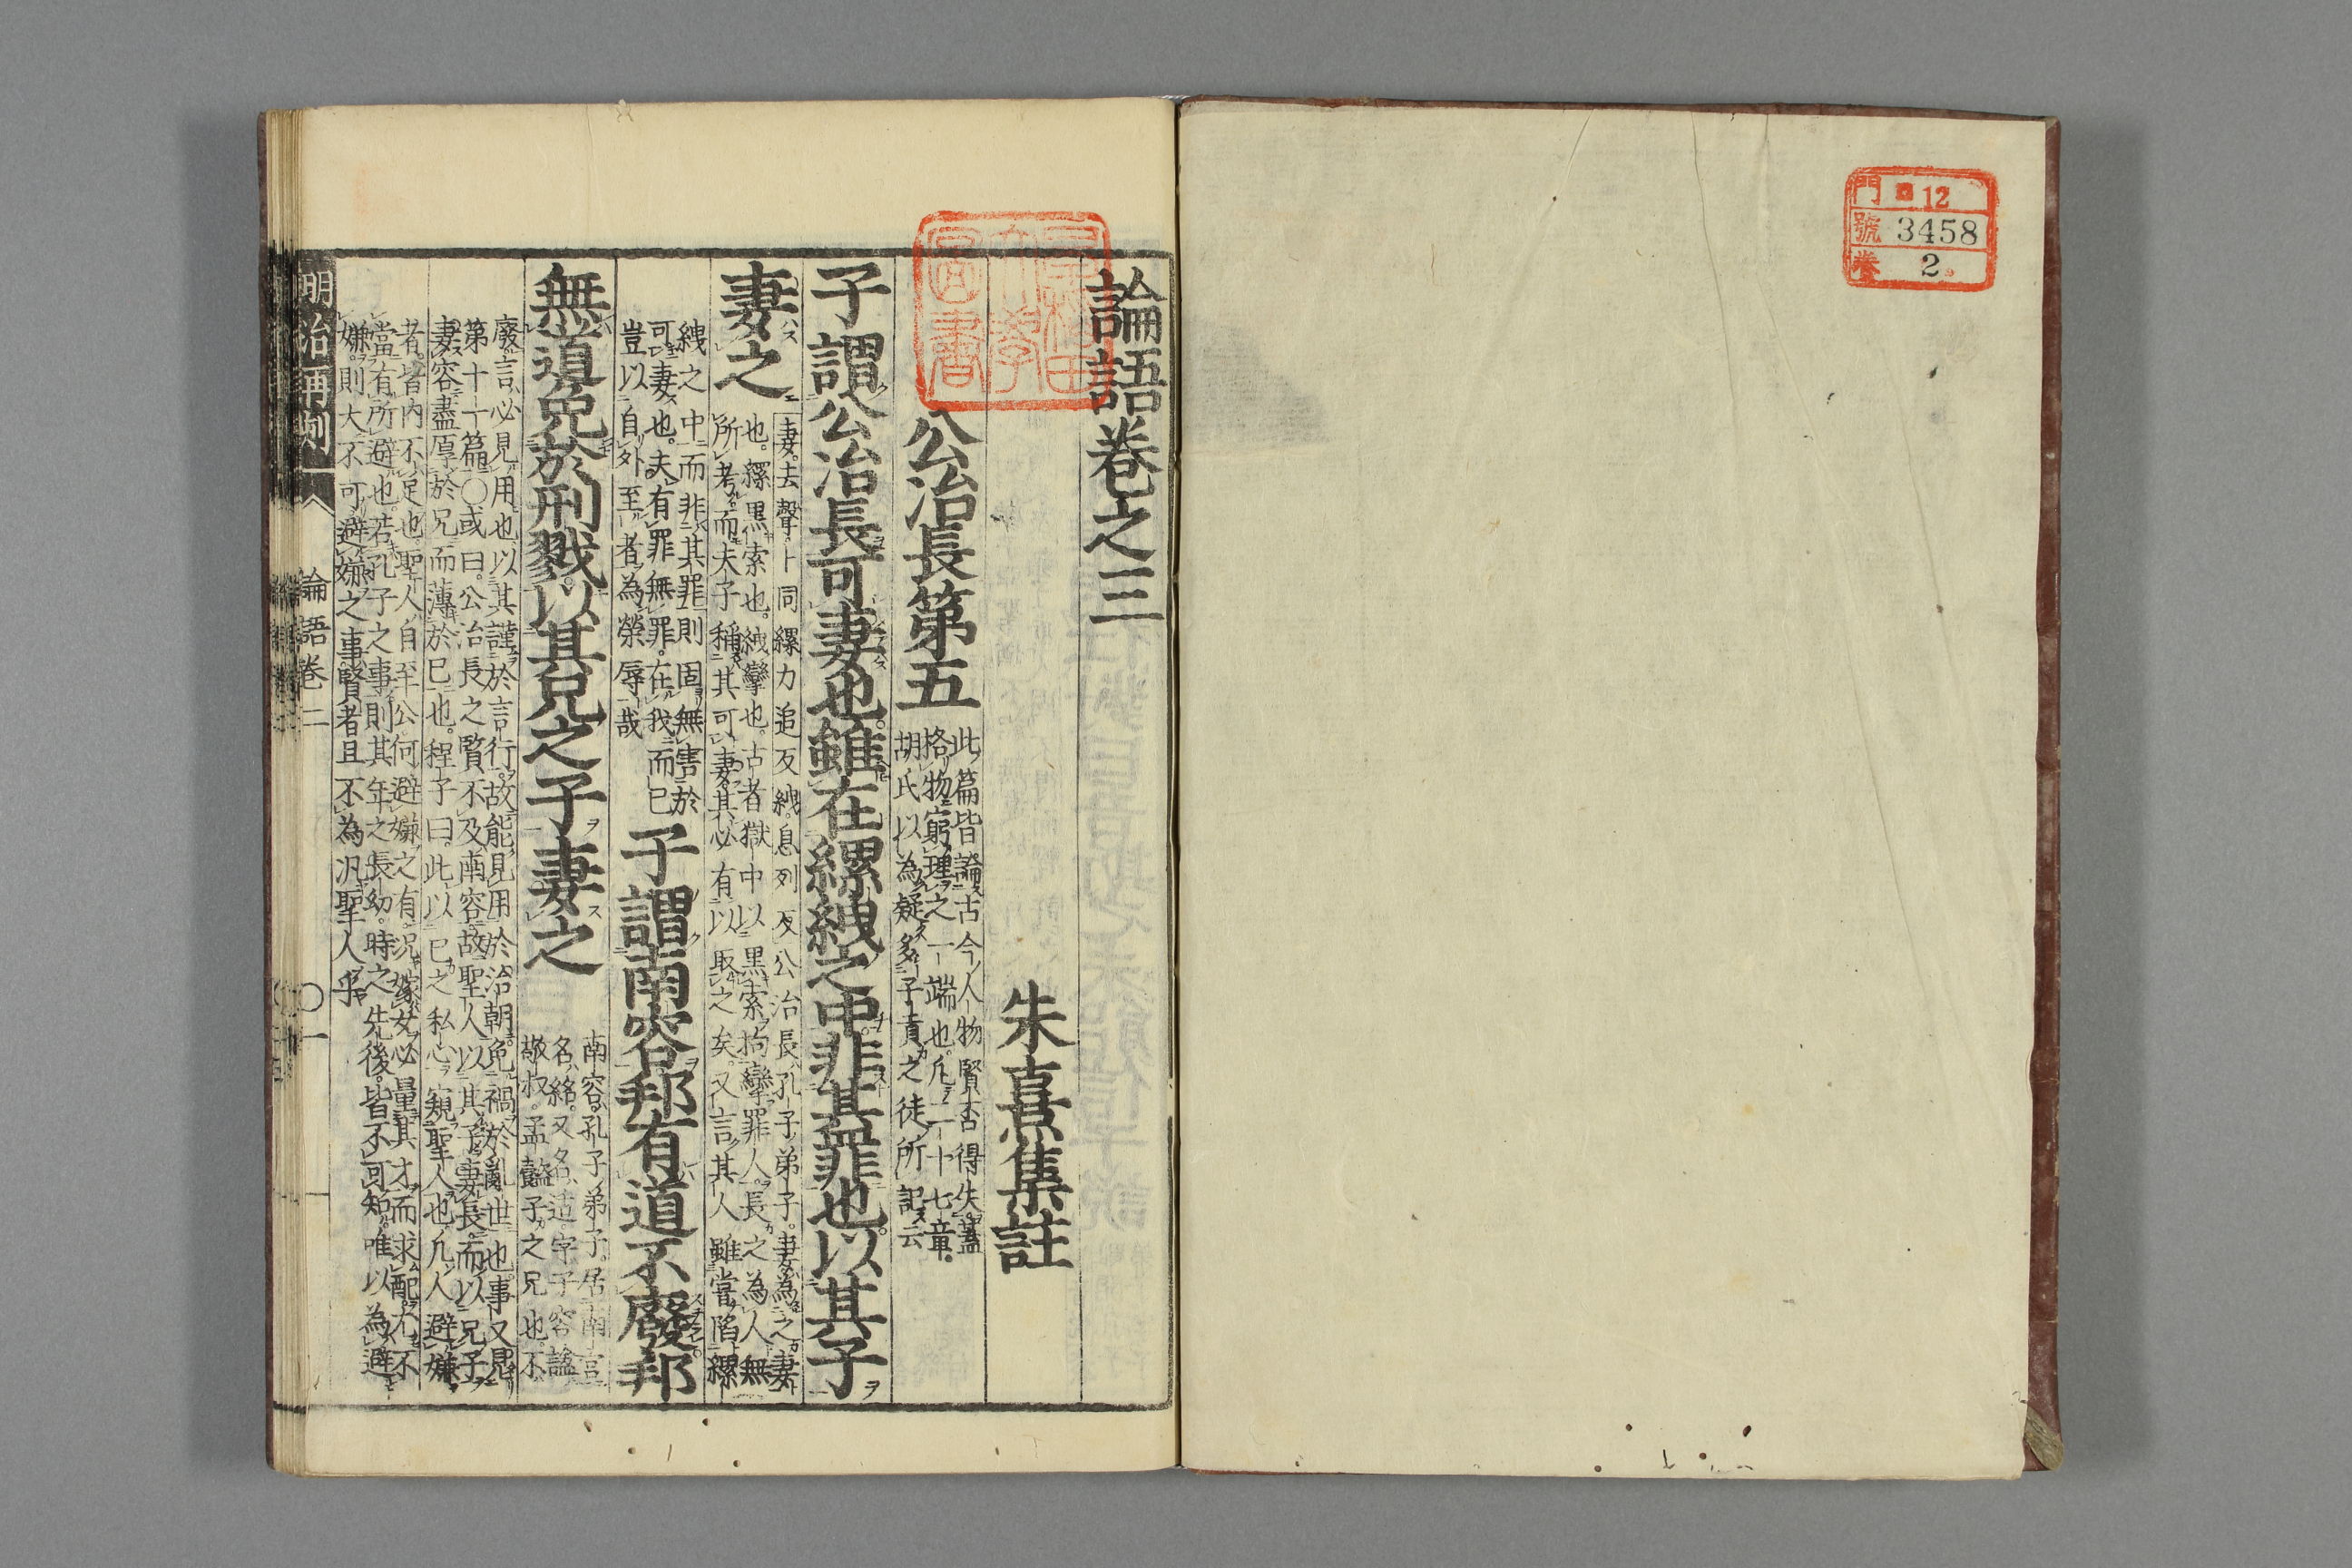 門 12
號 3458
卷 2
論語卷之三
朱熹集註
公冶長第五
此篇皆論古今人物賢否得失蓋
格物窮理之一端也凡二十七章
胡氏以為疑多子貢之徒所記云
子謂公冶長可妻也雖在縲絏之中非其罪也以其子
妻之
妻去聲下同縲力追反絏息列反公冶長孔子弟子妻為之妻
也縲黑索也絏攣也古者獄中以黑索拘攣罪人長之為人無
所考而夫子稱其可妻其必有以取之矣又言其人雖嘗陷縲
絏之中而非其罪則固無害於
可妻也夫有罪無罪在我而已
豈以自外至者為榮辱哉
子謂南容邦有道不廢邦
無道免於刑戮以其兄之子妻之
南容孔子弟子居南宮
名絡又名适字子容謚
敬叔孟懿子之兄也不
廢言必見用也以其謹於言行故能見用於治朝免禍於亂世也事又見
第十一篇○或曰公冶長之賢不及南容故聖人以其子妻長而以兄子
妻容蓋厚於兄而薄於已也程子曰此以已之私心窺聖人也凡人避嫌
者皆內不足也聖人自至公何避嫌之有況嫁女必量其才而求配尤不
當有所避也若孔子之事則其年之長幼時之先後皆不可知唯以為避
嫌則大不可避嫌之事賢者且不為況聖人乎
明治再刻
論語卷三
〇一